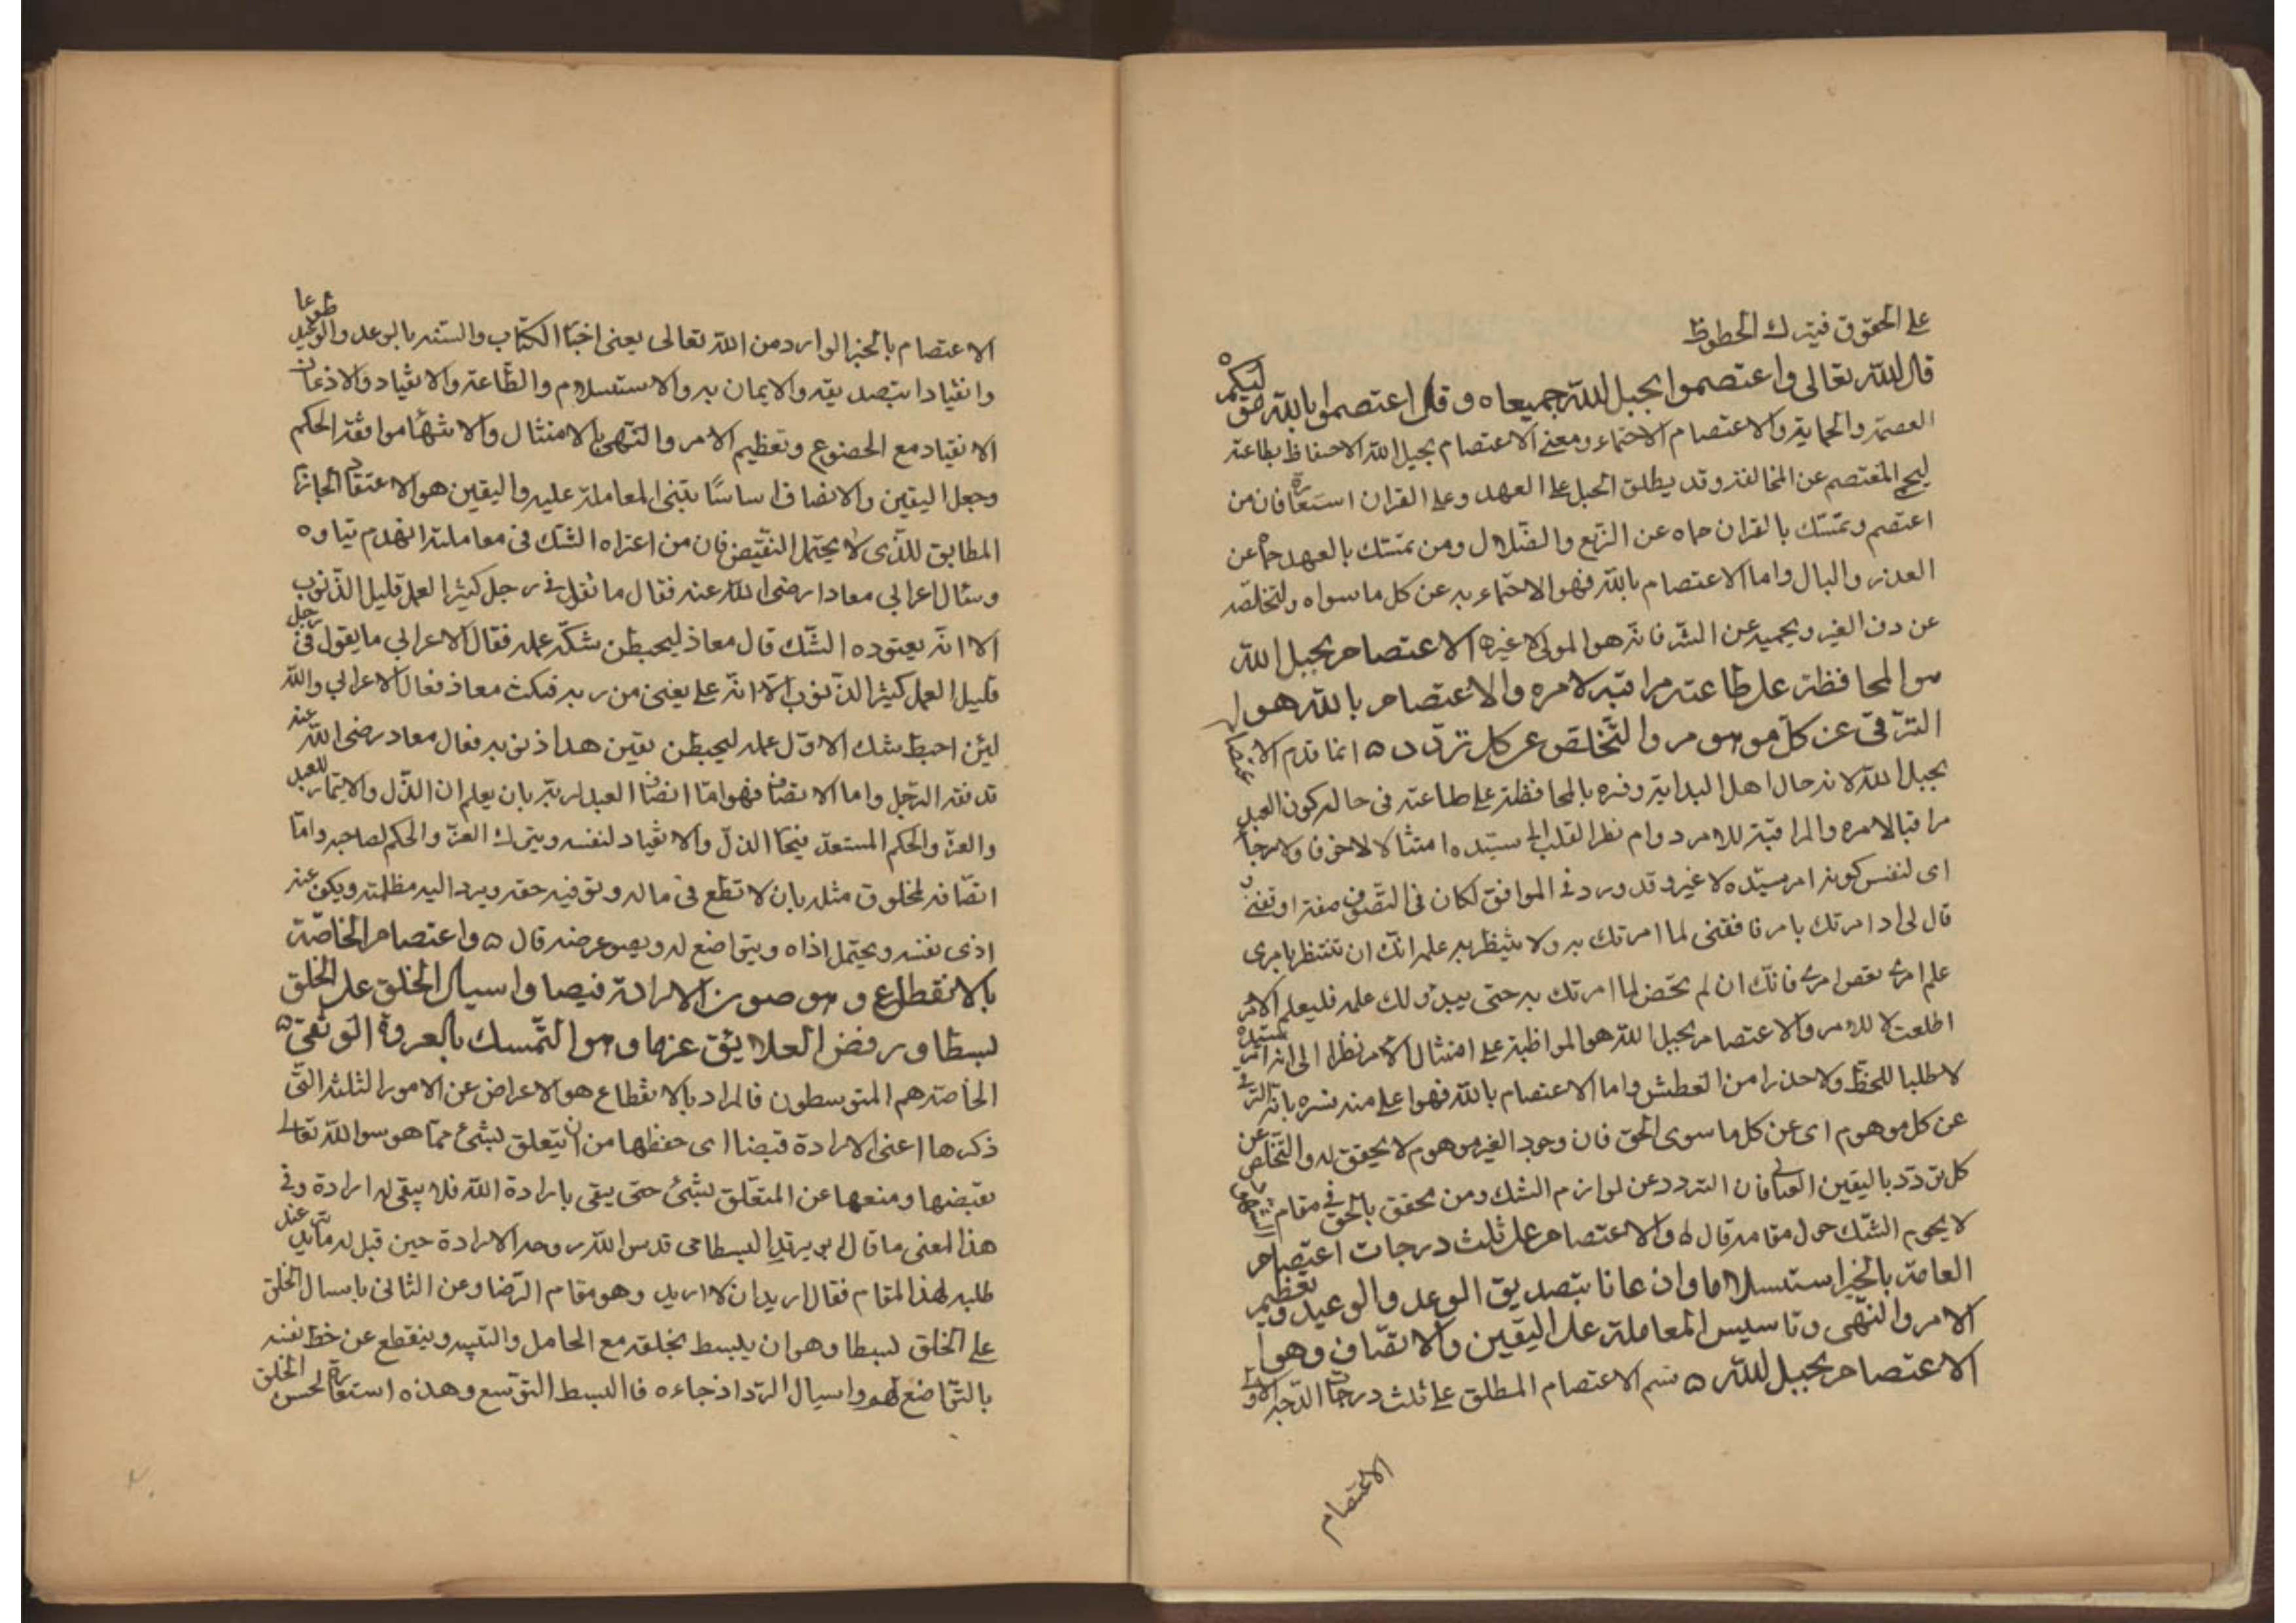 على الحقوق فيترك الحظوظ
قال الله تعالى واعتصموا بحبل الله جميعا ه وقال اعتصموا بالله هو موليكم ه
العصمة والحماية والاعتصام الاحتماء ومعنى الاعتصام بحبل الله الاحتفاظ بطاعته
المعتصم عن المخالفة وقد يطلق الحبل على العهد وعلى القران استعارة فان من
اعتصم وتمسك بالقران حماه عن الزيغ والضلال ومن تمسك بالعهد حماه عن
العذر والبال واما الاعتصام بالله فهو الاحتماء به عن كل ما سواه ولتخلصه
عن الغير ويحميه عن الشر فانه هو المولى لا غيره الاعتصام بحبل الله
هو المحافظة على طاعته مراقبة لامره والاعتصام بالله هو
الترقى عن كل موهوم والتخلص عن كل تردد ه انما قدم الاعتصام
بحبل الله لانه حال اهل البداية وفسره بالمحافظة على طاعته فى حاله كون العبد
مراقبا لامره والمراقبة للامر دوام نظر القلب الى سيده امتثالا لا خوفا ولا رجاء
اى لنفس كونه امر سيده لا غير وقد ورد فى المواقف
قال لى اذا امرتك بامر فامض لما امرتك به ولا ينتظر به علمه انك ان تنتظر بامرى
علم امرى تعص امرى فانك ان لم تمض لما امرتك به حتى يبدو لك علمه فليعلم الامر
اطعت لا للامر والاعتصام بحبل الله هو المواظبة على امتثال الامر نظرا الى انه امر سيده
لا طلبا للحظ ولا حذرا من العطش واما الاعتصام بالله فهو اعلى منه فسره بانه الترقى
عن كل موهوم اى عن كل ما سوى الحق فان وجود الغير موهوم لا تحقق له والتخلص عن
كل تردد باليقين فان التردد عن لوازم الشك ومن تحقق بالحق فى مقام
لا يحوم الشك حول مقامه قال ه والاعتصام على ثلث درجات اعتصام
العامة بالخبر استسلاما واذعانا بتصديق الوعد والوعيد وتعظيم
الامر والنهى وتاسيس المعاملة على اليقين والانصاف وهو
الاعتصام بحبل الله ه قسم الاعتصام المطلق على ثلث درجات الدرجة الاولى
الاعتصام
الاعتصام بالخبر الوارد من الله تعالى يعنى اخبار الكتاب والسنة بالوعد والوعيد طوعا
وانقيادا بتصديقه والايمان به والاستسلام والطاعة والانقياد والاذعان
الانقياد مع الخضوع وتعظيم الامر والنهى بالامتثال والانتهاء موافقة الحكم
وجعل اليقين والانصاف اساسا تبتنى المعاملة عليه واليقين هو الاعتقاد الجازم
المطابق للذى لا يحتمل النقيض فان من اعتراه الشك فى معاملته انهدم بناوه
وسال اعرابي معاذا رضى الله عنه فقال ما تقول فى رجل كثير العمل قليل الذنوب
الا انه يعتوده الشك قال معاذ ليحبطن شكه عمله فقال الاعرابي ما يقول فى رجل
قليل العمل كثير الذنوب الا انه على يقين من ربه فسكت معاذ فقال الاعرابي والله
لئن احبط شك الاول عمله ليحبطن يقين هذا ذنوبه فقال معاذ رضى الله عنه
قد فقه الرجل واما الانصاف فهو اما انصاف العبد لربه بان يعلم ان الذل والايتمار للعبد
والعز والحكم المستعد الذل والانقياد لنفسه ويترك العز والحكم لصاحبه واما
انصافه لمخلوق مثله بان لا تطمع فى ماله وتوفيه حقه ويرد اليه مظلمته ويكف عنه
اذى نفسه ويحتمل اذاه ويتواضع له ويصون عرضه قال ه واعتصام الخاصة
بالانقطاع وهو صون الارادة قبضا واسبال الخلق على الخلق
بسطا ورفض العلايق عزما وهو التمسك بالعروة الوثقى ه
الخاصة هم المتوسطون فالمراد بالانقطاع هو الاعراض عن الامور الثلثة التى
ذكرها اعنى الارادة قبضا اى حفظها من ان يتعلق بشئ مما هو سوا الله تعالى
بقبضها ومنعها عن المتعلق بشئ حتى يبقى بارادة الله فلا يبقى له ارادة وفى
هذا المعنى ما قال ابي يزيد البسطامى قدس الله روحه الارادة حين قيل له ما تريد عند
طلبه لهذا المقام فقال اريد ان لا اريد وهو مقام الرضا وعن الثانى باسبال الخلق
على الخلق بسطا وهو ان يلبسط بخلقه مع الحامل والنبيه وينقطع عن حظ نفسه
بالتواضع لهم واسبال الردا ارخاءه فالبسط التوسع وهذه استعارة لحسن الخلق